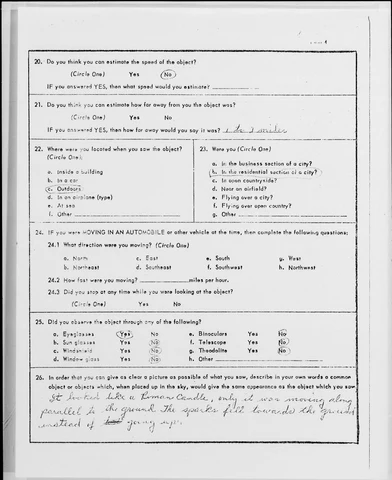 20. Do you think you can estimate the speed of the object?
(Circle One) Yes No
IF you answered YES, then what speed would you estimate?
21. Do you think you can estimate how far away from you the object was?
(Circle One) Yes No
IF you answered YES, then how far away would you say it was? 1 to 2 miles
22. Where were you located when you saw the object?
(Circle One):
a. Inside a building
b. In a car
c. Outdoors
d. In an airplane (type)
e. At sea
f. Other
23. Were you (Circle One)
a. In the business section of a city?
b. In the residential section of a city?
c. In open countryside?
d. Near an airfield?
e. Flying over a city?
f. Flying over open country?
g. Other
24. IF you were MOVING IN AN AUTOMOBILE or other vehicle at the time, then complete the following questions:
24.1 What direction were you moving? (Circle One)
a. North c. East e. South g. West
b. Northeast d. Southeast f. Southwest h. Northwest
24.2 How fast were you moving? miles per hour.
24.3 Did you stop at any time while you were looking at the object?
(Circle One) Yes No
25. Did you observe the object through any of the following?
a. Eyeglasses Yes No e. Binoculars Yes No
b. Sun glasses Yes No f. Telescope Yes No
c. Windshield Yes No g. Theodolite Yes No
d. Window glass Yes No h. Other
26. In order that you can give as clear a picture as possible of what you saw, describe in your own words a common
object or objects which, when placed up in the sky, would give the same appearance as the object which you saw.
It looked like a Roman Candle, only it was moving along
parallel to the ground. The sparks fell towards the ground
instead of going up.